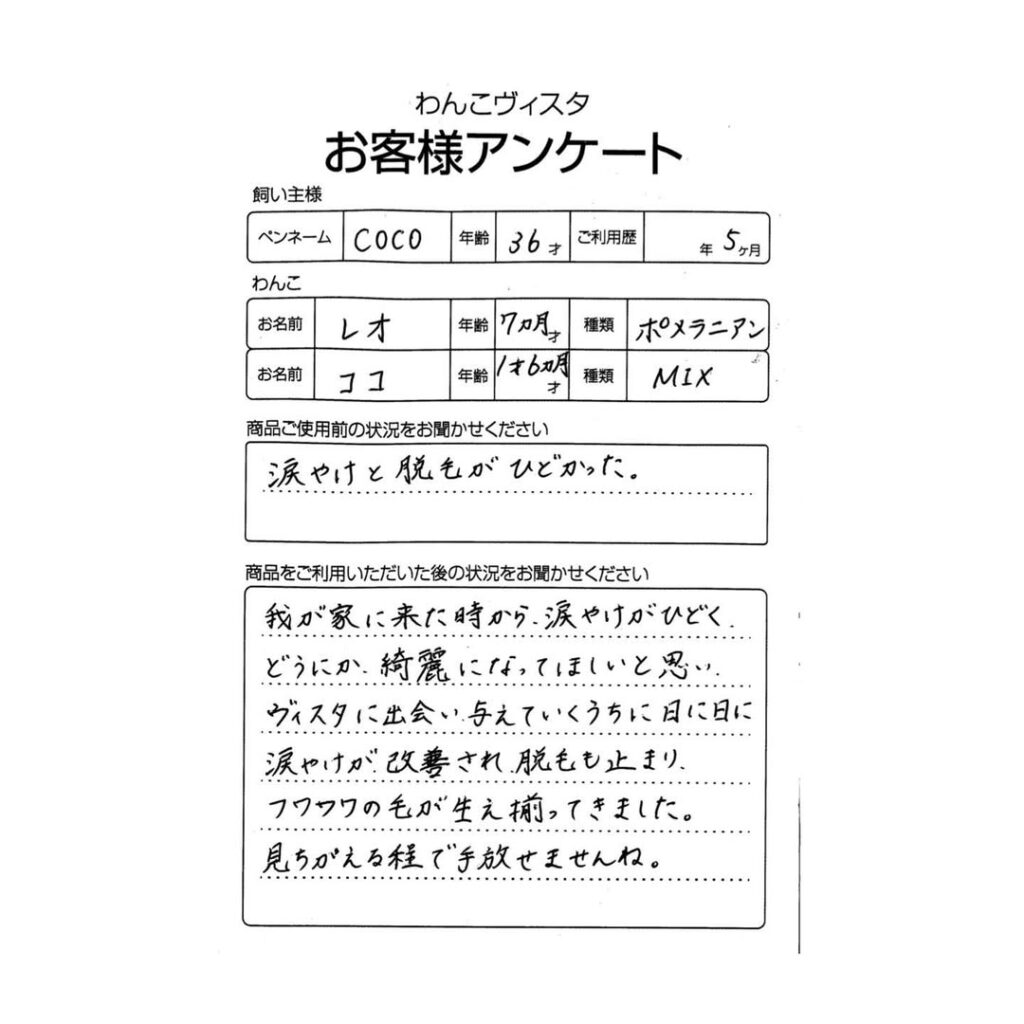 わんこヴィスタ
お客様アンケート
飼い主様
ペンネーム COCO 年齢 36才 ご利用歴 年 5ヶ月
わんこ
お名前 レオ 年齢 7ヵ月才 種類 ポメラニアン
お名前 ココ 年齢 1才6ヵ月才 種類 MIX
商品ご使用前の状況をお聞かせください
涙やけと脱毛がひどかった。
商品をご利用いただいた後の状況をお聞かせください
我が家に来た時から、涙やけがひどく、
どうにか、綺麗になってほしいと思い、
ヴィスタに出会い、与えていくうちに日に日に
涙やけが、改善され、脱毛も止まり、
フワフワの毛が生え揃ってきました。
見ちがえる程で手放せませんね。